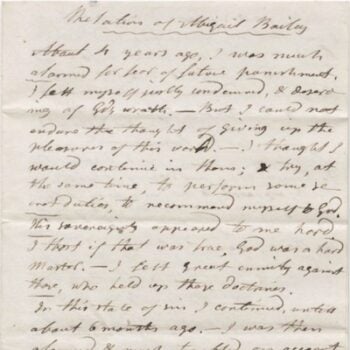 The Relation of Abigail Bailey
About 4 years ago, I was much
alarmed for fear of future punishment.
I felt myself justly condemned, & deserv
ing of God's wrath. — But I could not
endure the thought of giving up the
pleasures of this world. — I thought I
would continue in them; & try, at
the same time, to perform some
duties, to recommend myself to God.
His sovereignty appeared to me hard
I thot if that was true, God was a hard
Master. — I felt great enmity against
those, who held up those doctrines.
In this state of sin I continued, until
about 6 months ago. — I was then